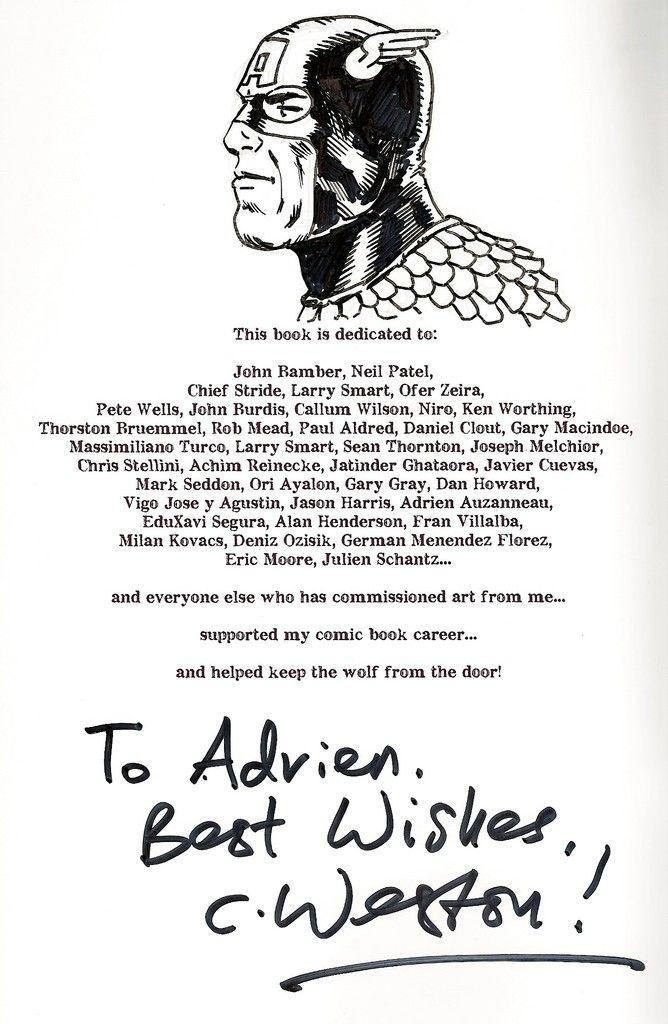 A
This book is dedicated to:
John Bamber, Neil Patel,
Chief Stride, Larry Smart, Ofer Zeira,
Pete Wells, John Burdis, Callum Wilson, Niro, Ken Worthing,
Thorston Bruemmel, Rob Mead, Paul Aldred, Daniel Clout, Gary Macindoe,
Massimiliano Turco, Larry Smart, Sean Thornton, Joseph Melchior,
Chris Stellini, Achim Reinecke, Jatinder Ghataora, Javier Cuevas,
Mark Seddon, Ori Ayalon, Gary Gray, Dan Howard,
Vigo Jose y Agustin, Jason Harris, Adrien Auzanneau,
EduXavi Segura, Alan Henderson, Fran Villalba,
Milan Kovacs, Deniz Ozisik, German Menendez Florez,
Eric Moore, Julien Schantz...
and everyone else who has commissioned art from me...
supported my comic book career...
and helped keep the wolf from the door!
To Adrien.
Best Wishes.
C. Weston!